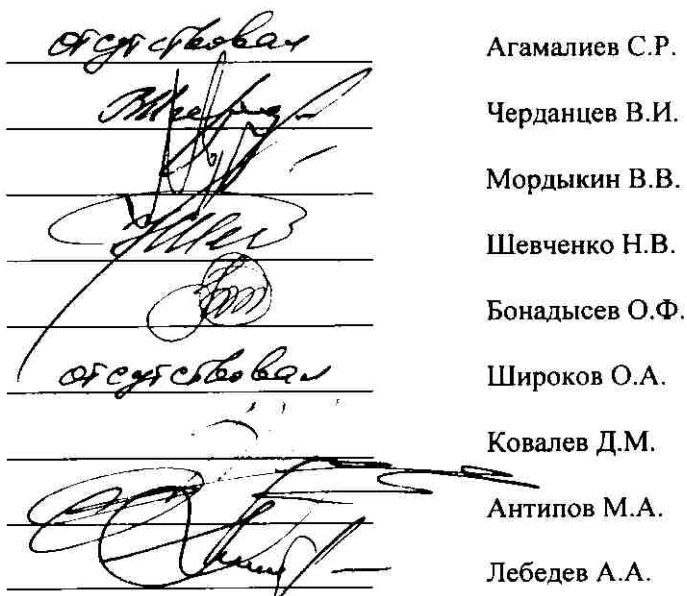 отсутствовал Агамалиев С.Р.
Черданцев В.И.
Мордыкин В.В.
Шевченко Н.В.
Бонадысев О.Ф.
отсутствовал Широков О.А.
Ковалев Д.М.
Антипов М.А.
Лебедев А.А.